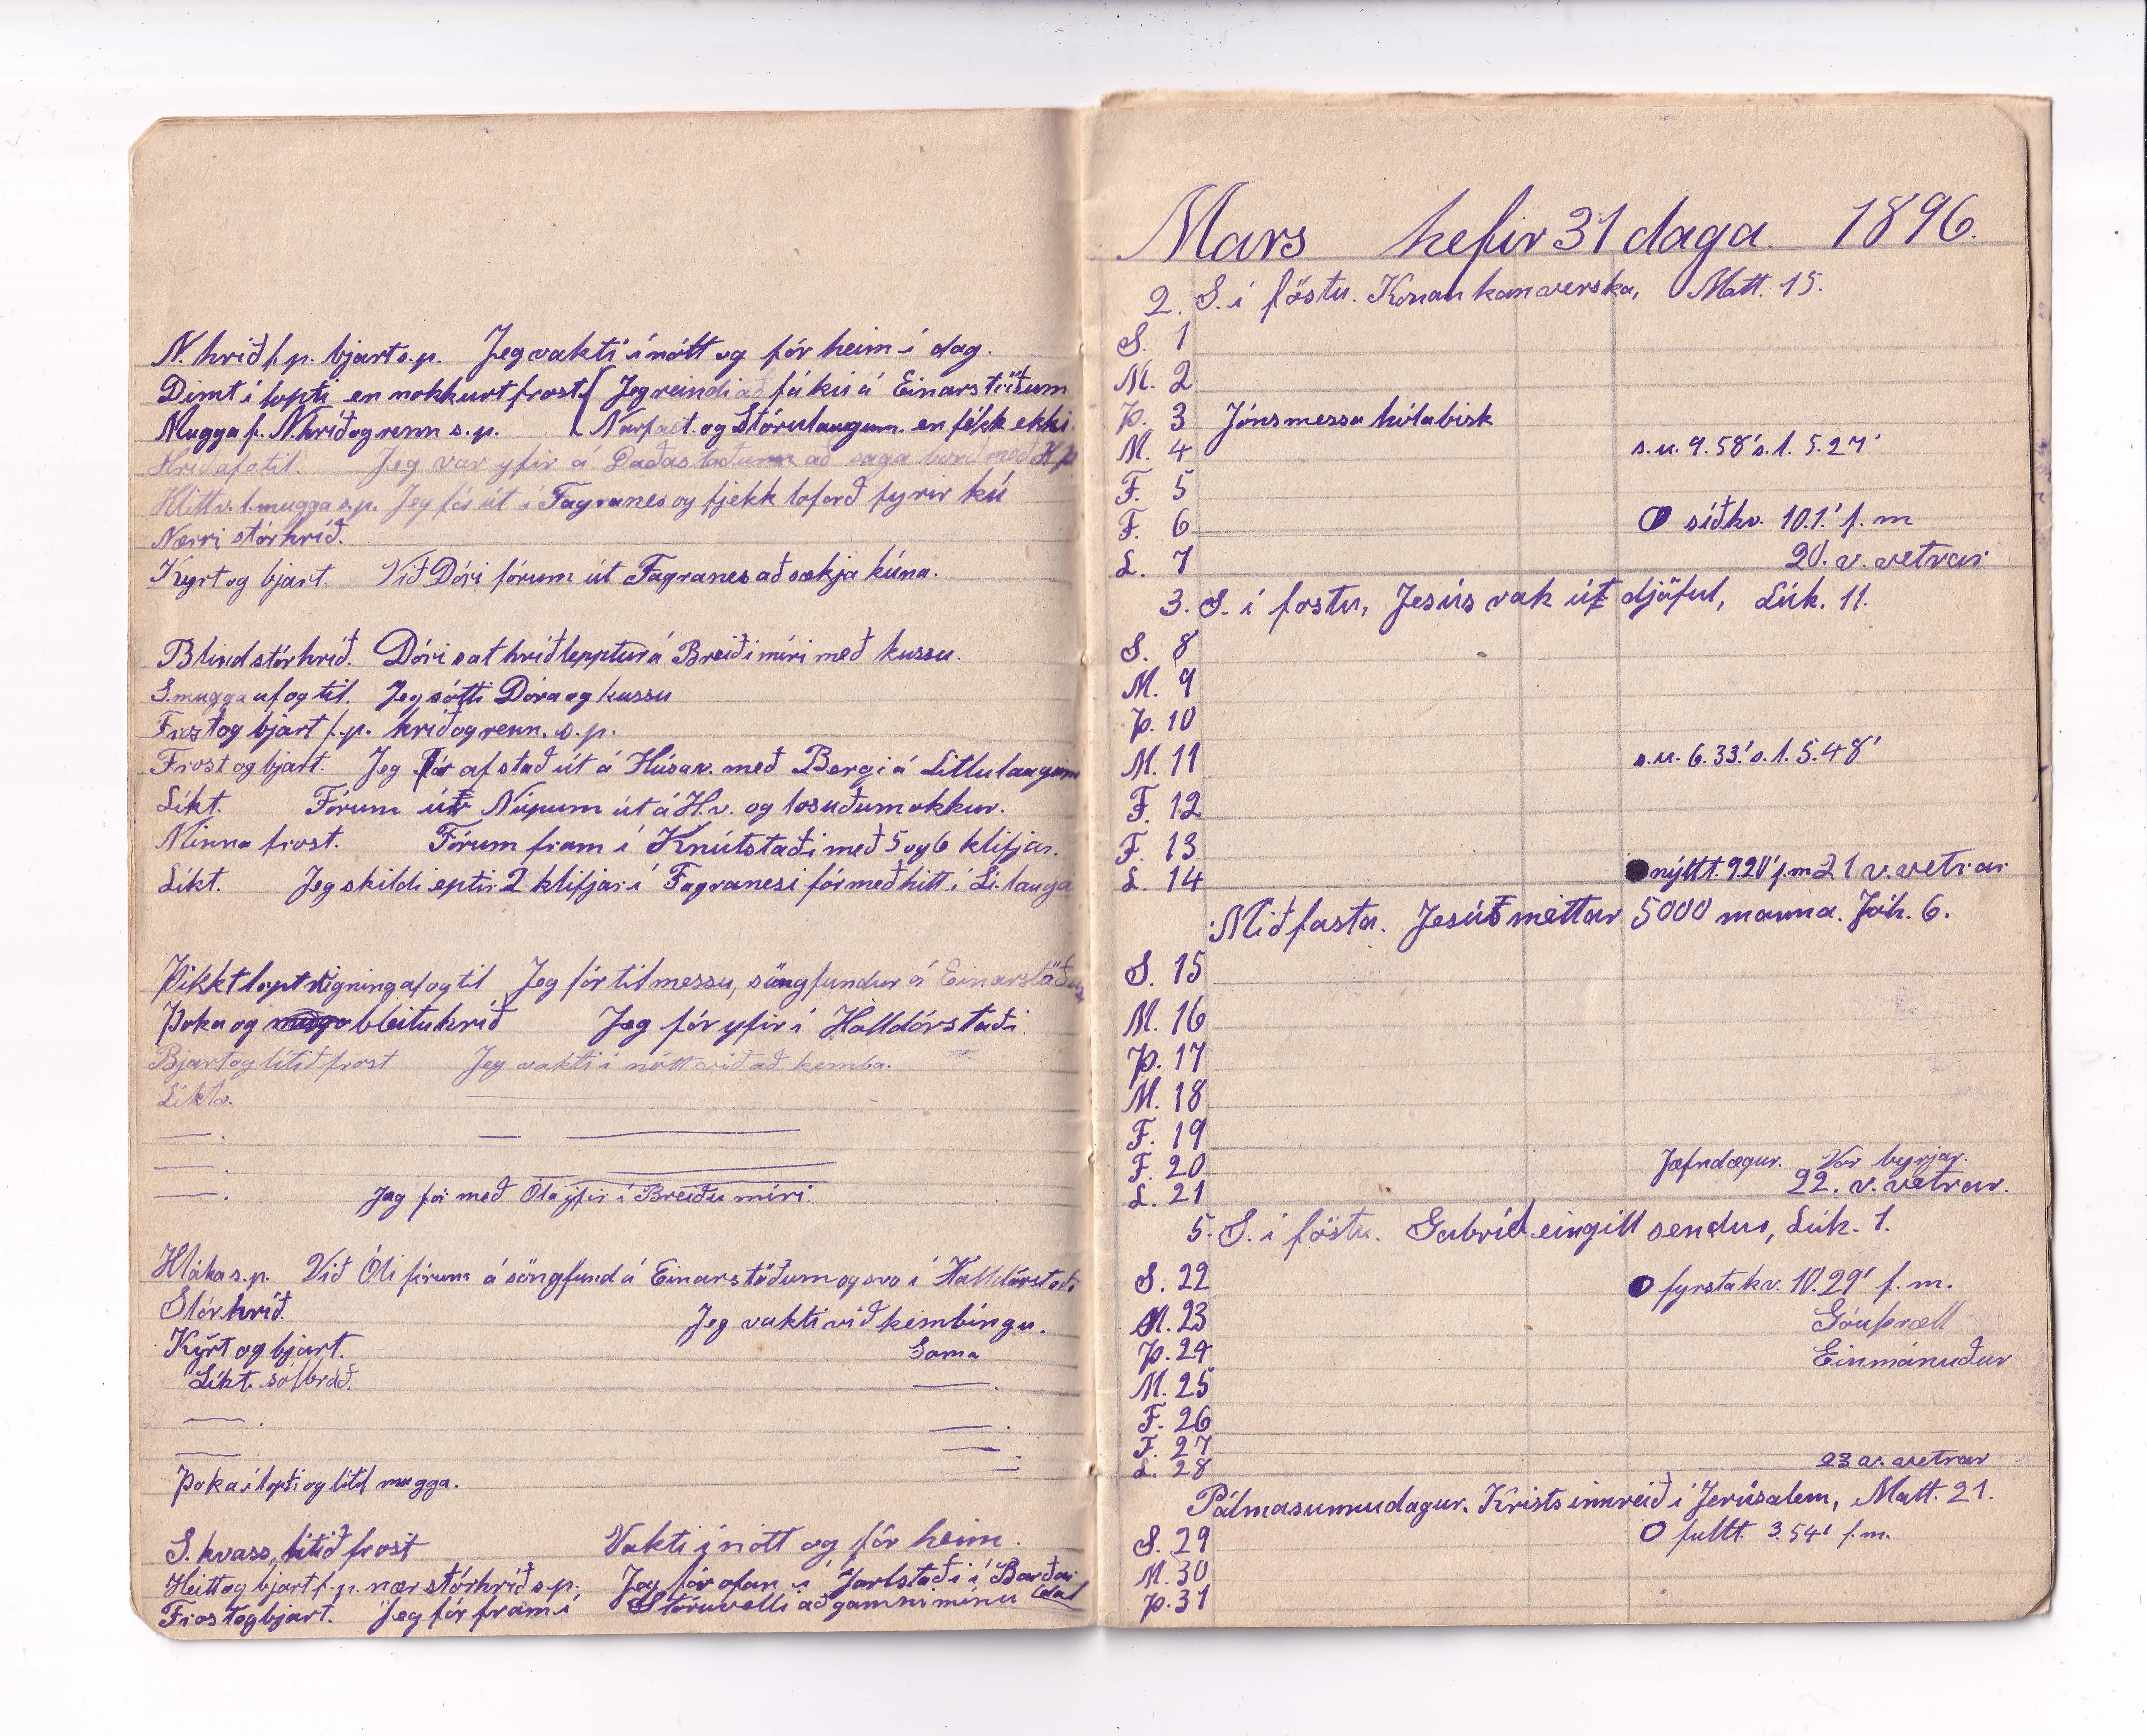 N. hríð f.p. bjart s.p. Jeg vakti í nótt og fór heim í dag.
Dimt í lopti en nokkurt frost { Jeg reindi að fá kú á Einarstöðum
Mugga f. N.hríð og renn s.p. Narfast. og Stórulaugum en fékk ekki.
Hríð af o. til. Jeg var yfir á Daðastöðum að saga borð með H p
Hlítt v. l. mugga s.p. Jeg fór út í Fagranes og fjekk loforð fyrir kú
Nærri stórhríð.
Kyrt og bjart. Við Dóri fórum út Fagranes að sækja kúna.
Blindstórhríð. Dóri sat hríðlepptur á Breiðimíri með kussu.
S.mugga af og til. Jeg sótti Dóra og kussu
Frost og bjart f.p. hríð og renn. s.p.
Frost og bjart. Jeg fór af stað út á Húsav. með Bergi á Litlulaugum
Líkt. Fórum úr Núpum út á H.v. og losuðum okkur.
Minna frost. Fórum fram í Knútstaði með 5 og 6 klifjar.
Líkt. Jeg skildi eptir 2 klifjar í Fagranesi fór með hitt í Li. lauga
Þikkt lopt rigning af og til Jeg fór til messu, söngfundur á Einarstöðum
Þoka og bleituhríð Jeg fór yfir í Halldórstaði.
Bjart og lítið frost Jeg vakti í nótt við að kemba.
Líkt v. ———
— . — ———
— . ———
— . Jeg fór með Óla yfir í Breiðumíri.
Hláka s.p. Við Óli fórum á söngfund á Einarstöðum og svo í Halldórstaði
Stórhríð. Jeg vakti við kembingu.
Kyrt og bjart. Sama
Líkt. sólbráð. — .
— . — .
— — .
Þoka í lopti og lítil mugga. —
S. hvass, lítið frost Vakti í nótt og fór heim.
Heitt og bjart f.p. nær stórhríð s.p. Jeg fór ofan í Jarlstaði í Barðar
Frost og bjart. Jeg fór fram í Stóruvelli að gamni mínu (dal
Mars hefir 31 daga. 1896.
2. S. í föstu. Konan kanverska, Matt. 15.
S. 1
M. 2
Þ. 3 Jónsmessa hólabisk
M. 4 s.u. 9.58' s.l. 5.27'
F. 5
F. 6 síðkv. 10.1.' f.m
L. 7 20. v. vetrar
3. S. í fostu, Jesús rak út djöful, Lúk. 11.
S. 8
M. 9
Þ. 10
M. 11 s.u. 6.33.' s.l. 5.48'
F. 12
F. 13
L. 14 nýtt t. 9.20' f.m 21 v. vetrar
Miðfasta. Jesús mettar 5000 manna. Jóh. 6.
S. 15
M. 16
Þ. 17
M. 18
F. 19
F. 20 Jafndægur. Vor byrjar.
L. 21 22. v. vetrar.
5. S. í föstu. Gabríel eingill sendur, Lúk. 1.
S. 22 fyrsta kv. 10.29' f.m.
M. 23 Góuþræll
Þ. 24 Einmánuður
M. 25
F. 26
F. 27
L. 28 23 v. vetrar
Pálmasunnudagur. Krists innreið í Jerúsalem, Matt. 21.
S. 29 fullt t. 3.54' f.m.
M. 30
Þ. 31